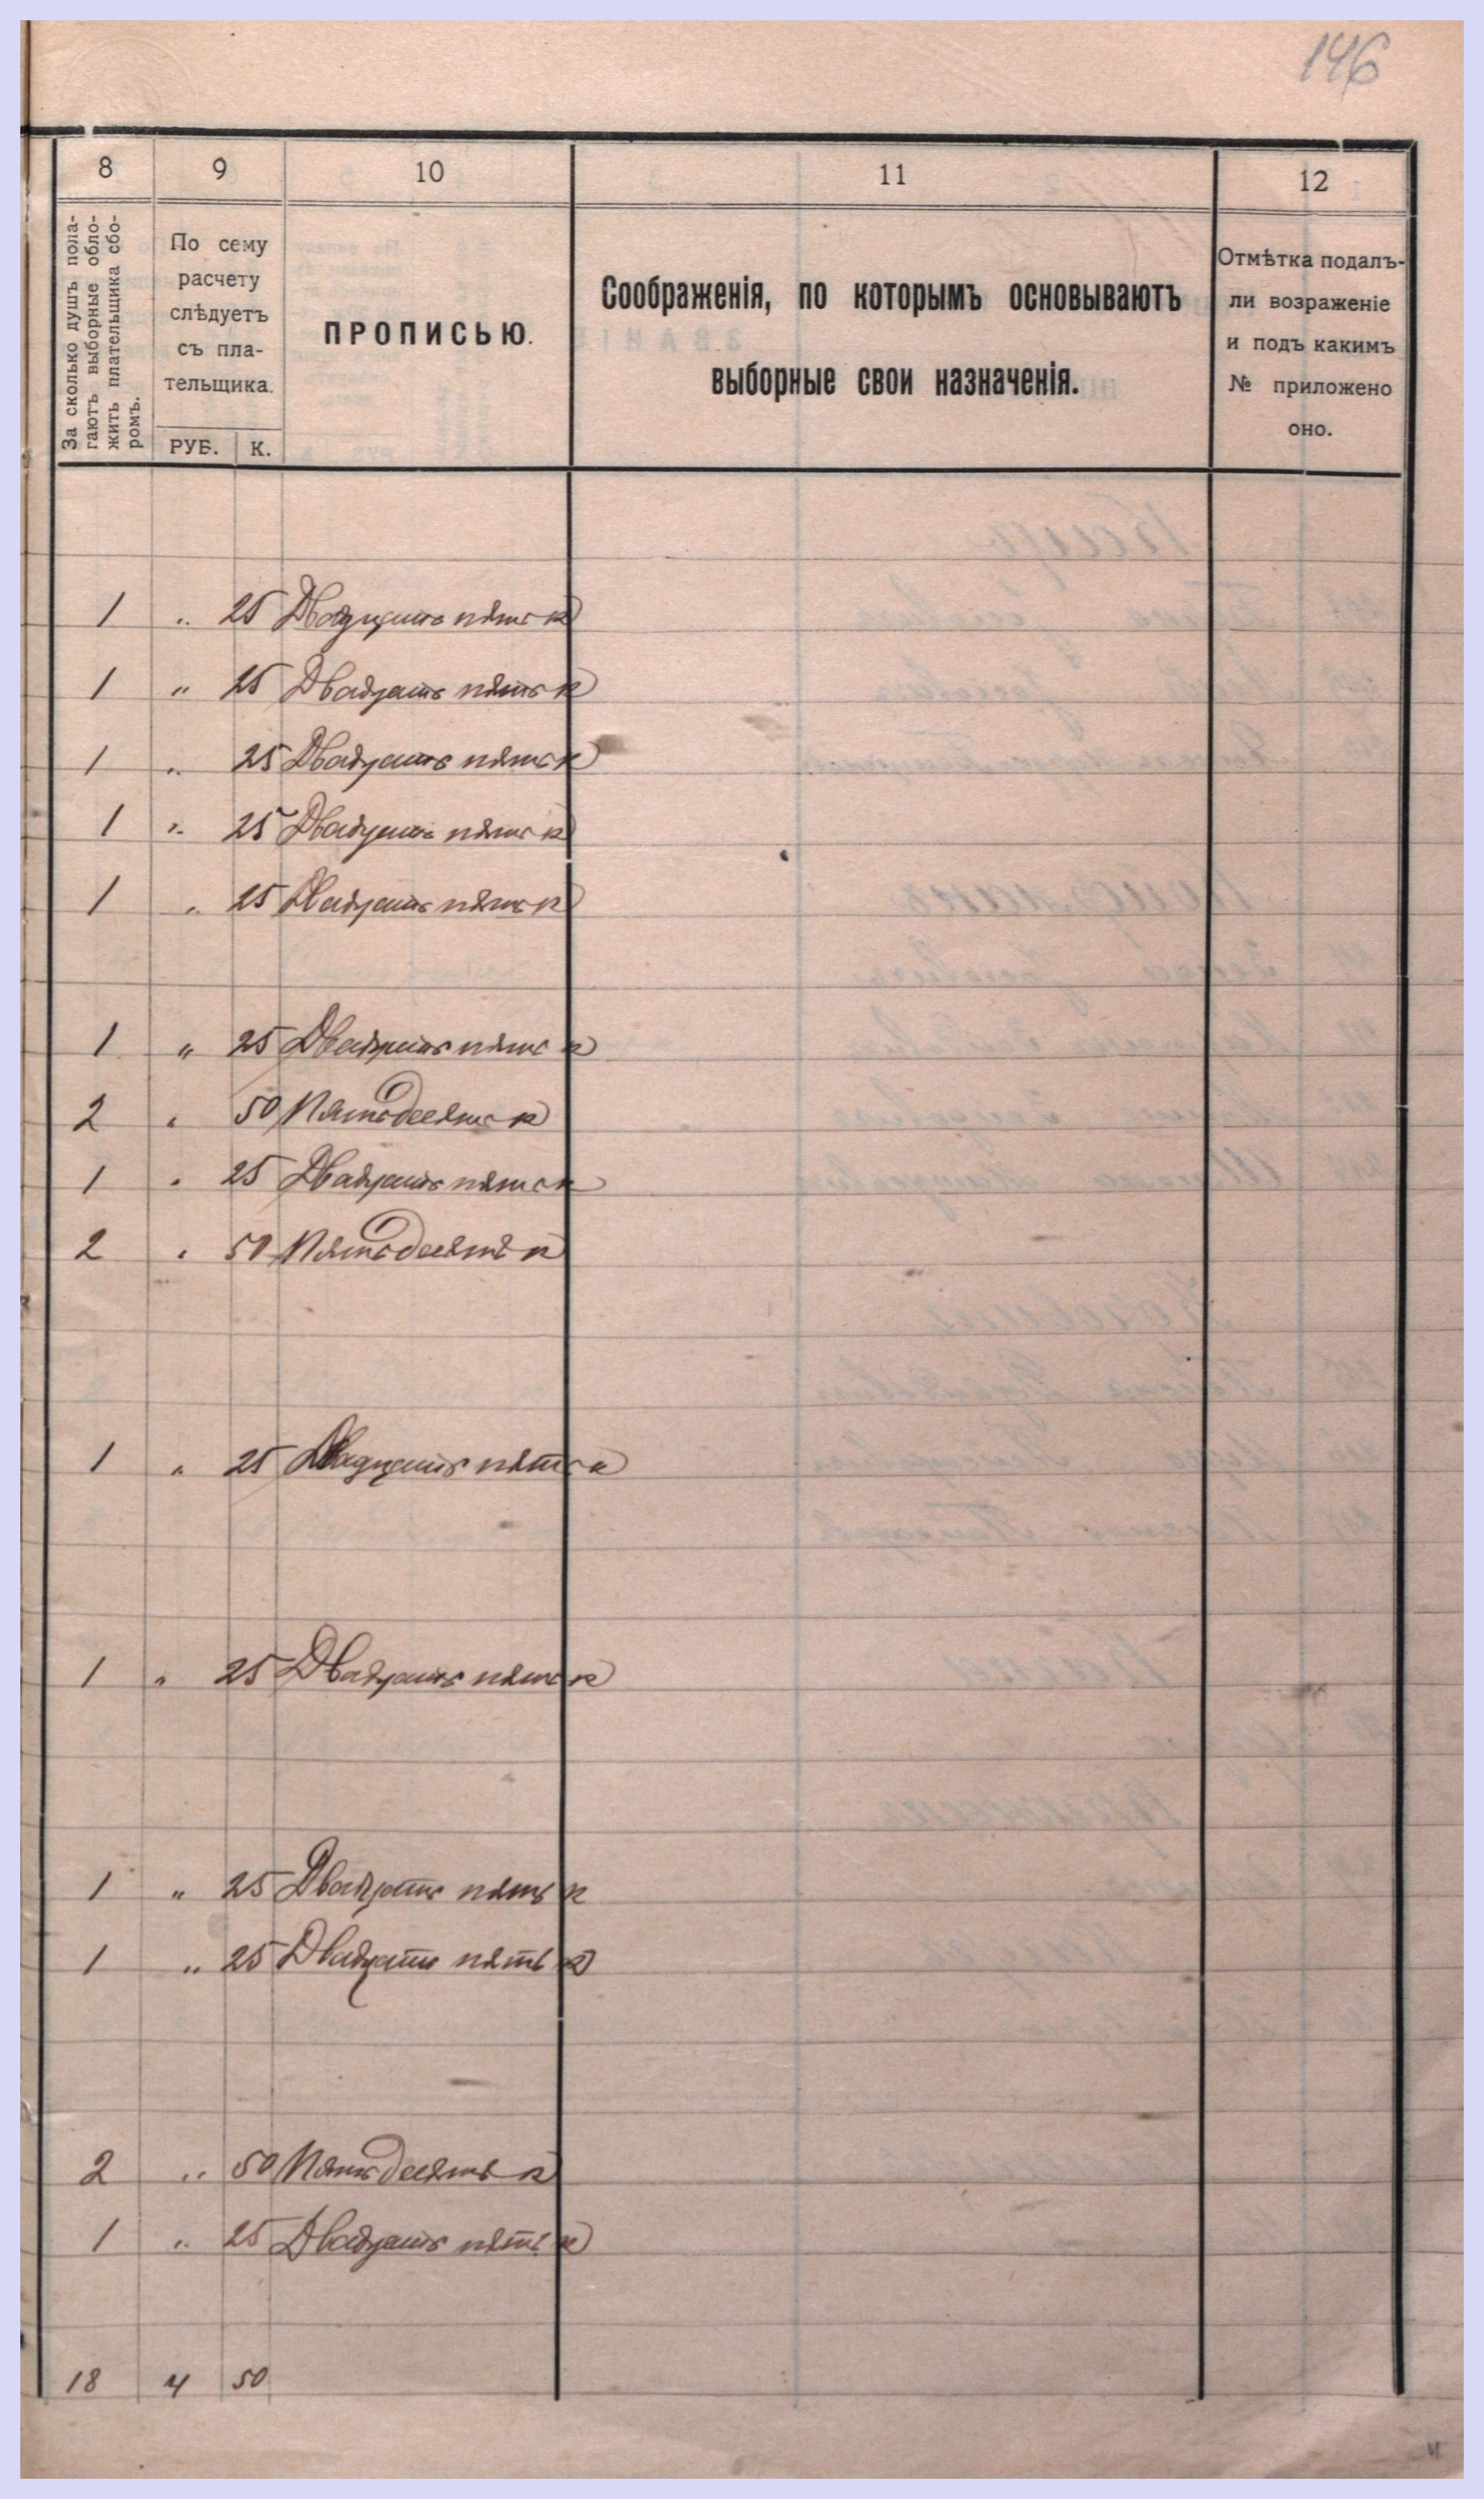 146
8 9 10 11 12
За сколько душъ пола-
гаютъ выборные обло-
жить плательщика сбо-
ромъ.
По сему
расчету
слѣдуетъ
съ пла-
тельщика.
РУБ. К.
ПРОПИСЬЮ.
Соображенія, по которымъ основываютъ
выборные свои назначенія.
Отмѣтка подалъ-
ли возраженіе
и подъ какимъ
№ приложено
оно.
1 " 25 Двадцать пять к
1 " 25 Двадцать пять к
1 " 25 Двадцать пять к
1 " 25 Двадцать пять к
1 " 25 Двадцать пять к
1 " 25 Двадцать пять к
2 " 50 Пятьдесять к
1 " 25 Двадцать пять к
2 " 50 Пятьдесять к
1 " 25 Двадцать пять к
1 " 25 Двадцать пять к
1 " 25 Двадцать пять к
1 " 25 Двадцать пять к
2 " 50 Пятьдесять к
1 " 25 Двадцать пять к
18 4 50